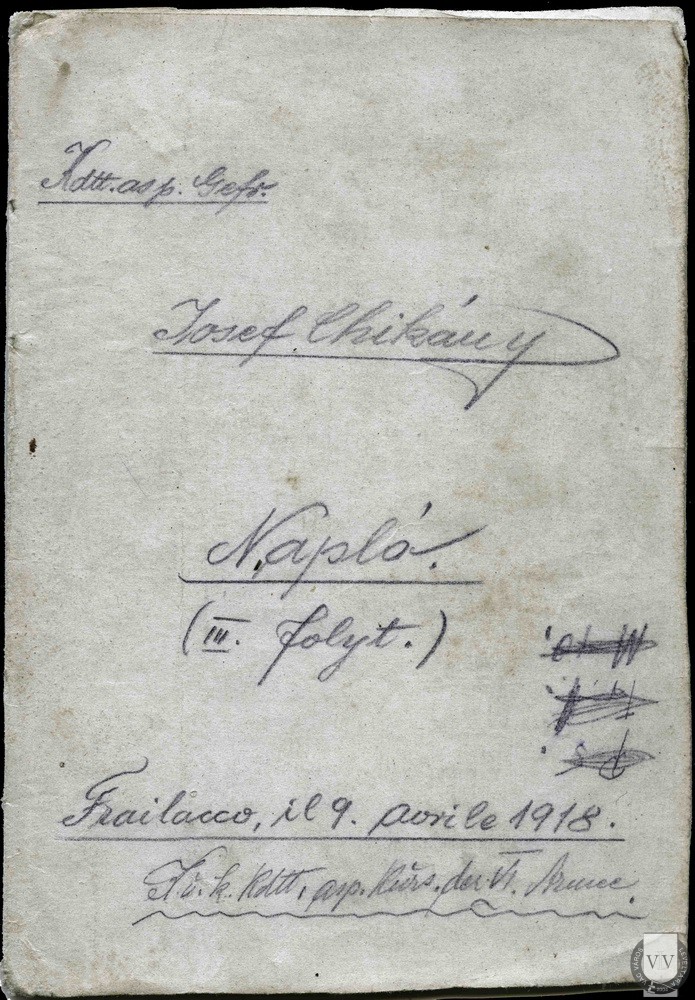 Kdtt. asp. Gefr.
Josef Chikány
Napló.
(III. folyt.)
Frailacco, il 9. aprile 1918.
K. u. k. Kdtt. asp. Kurs. der VI. Armee.
VV